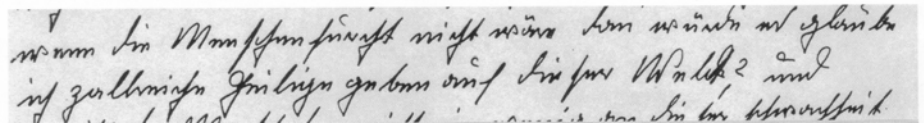 wenn die Menschenfurcht nicht wäre dan würde es glaube
ich zallreiche Heilige geben auf dieser Welt? und
an dieser schwachheit